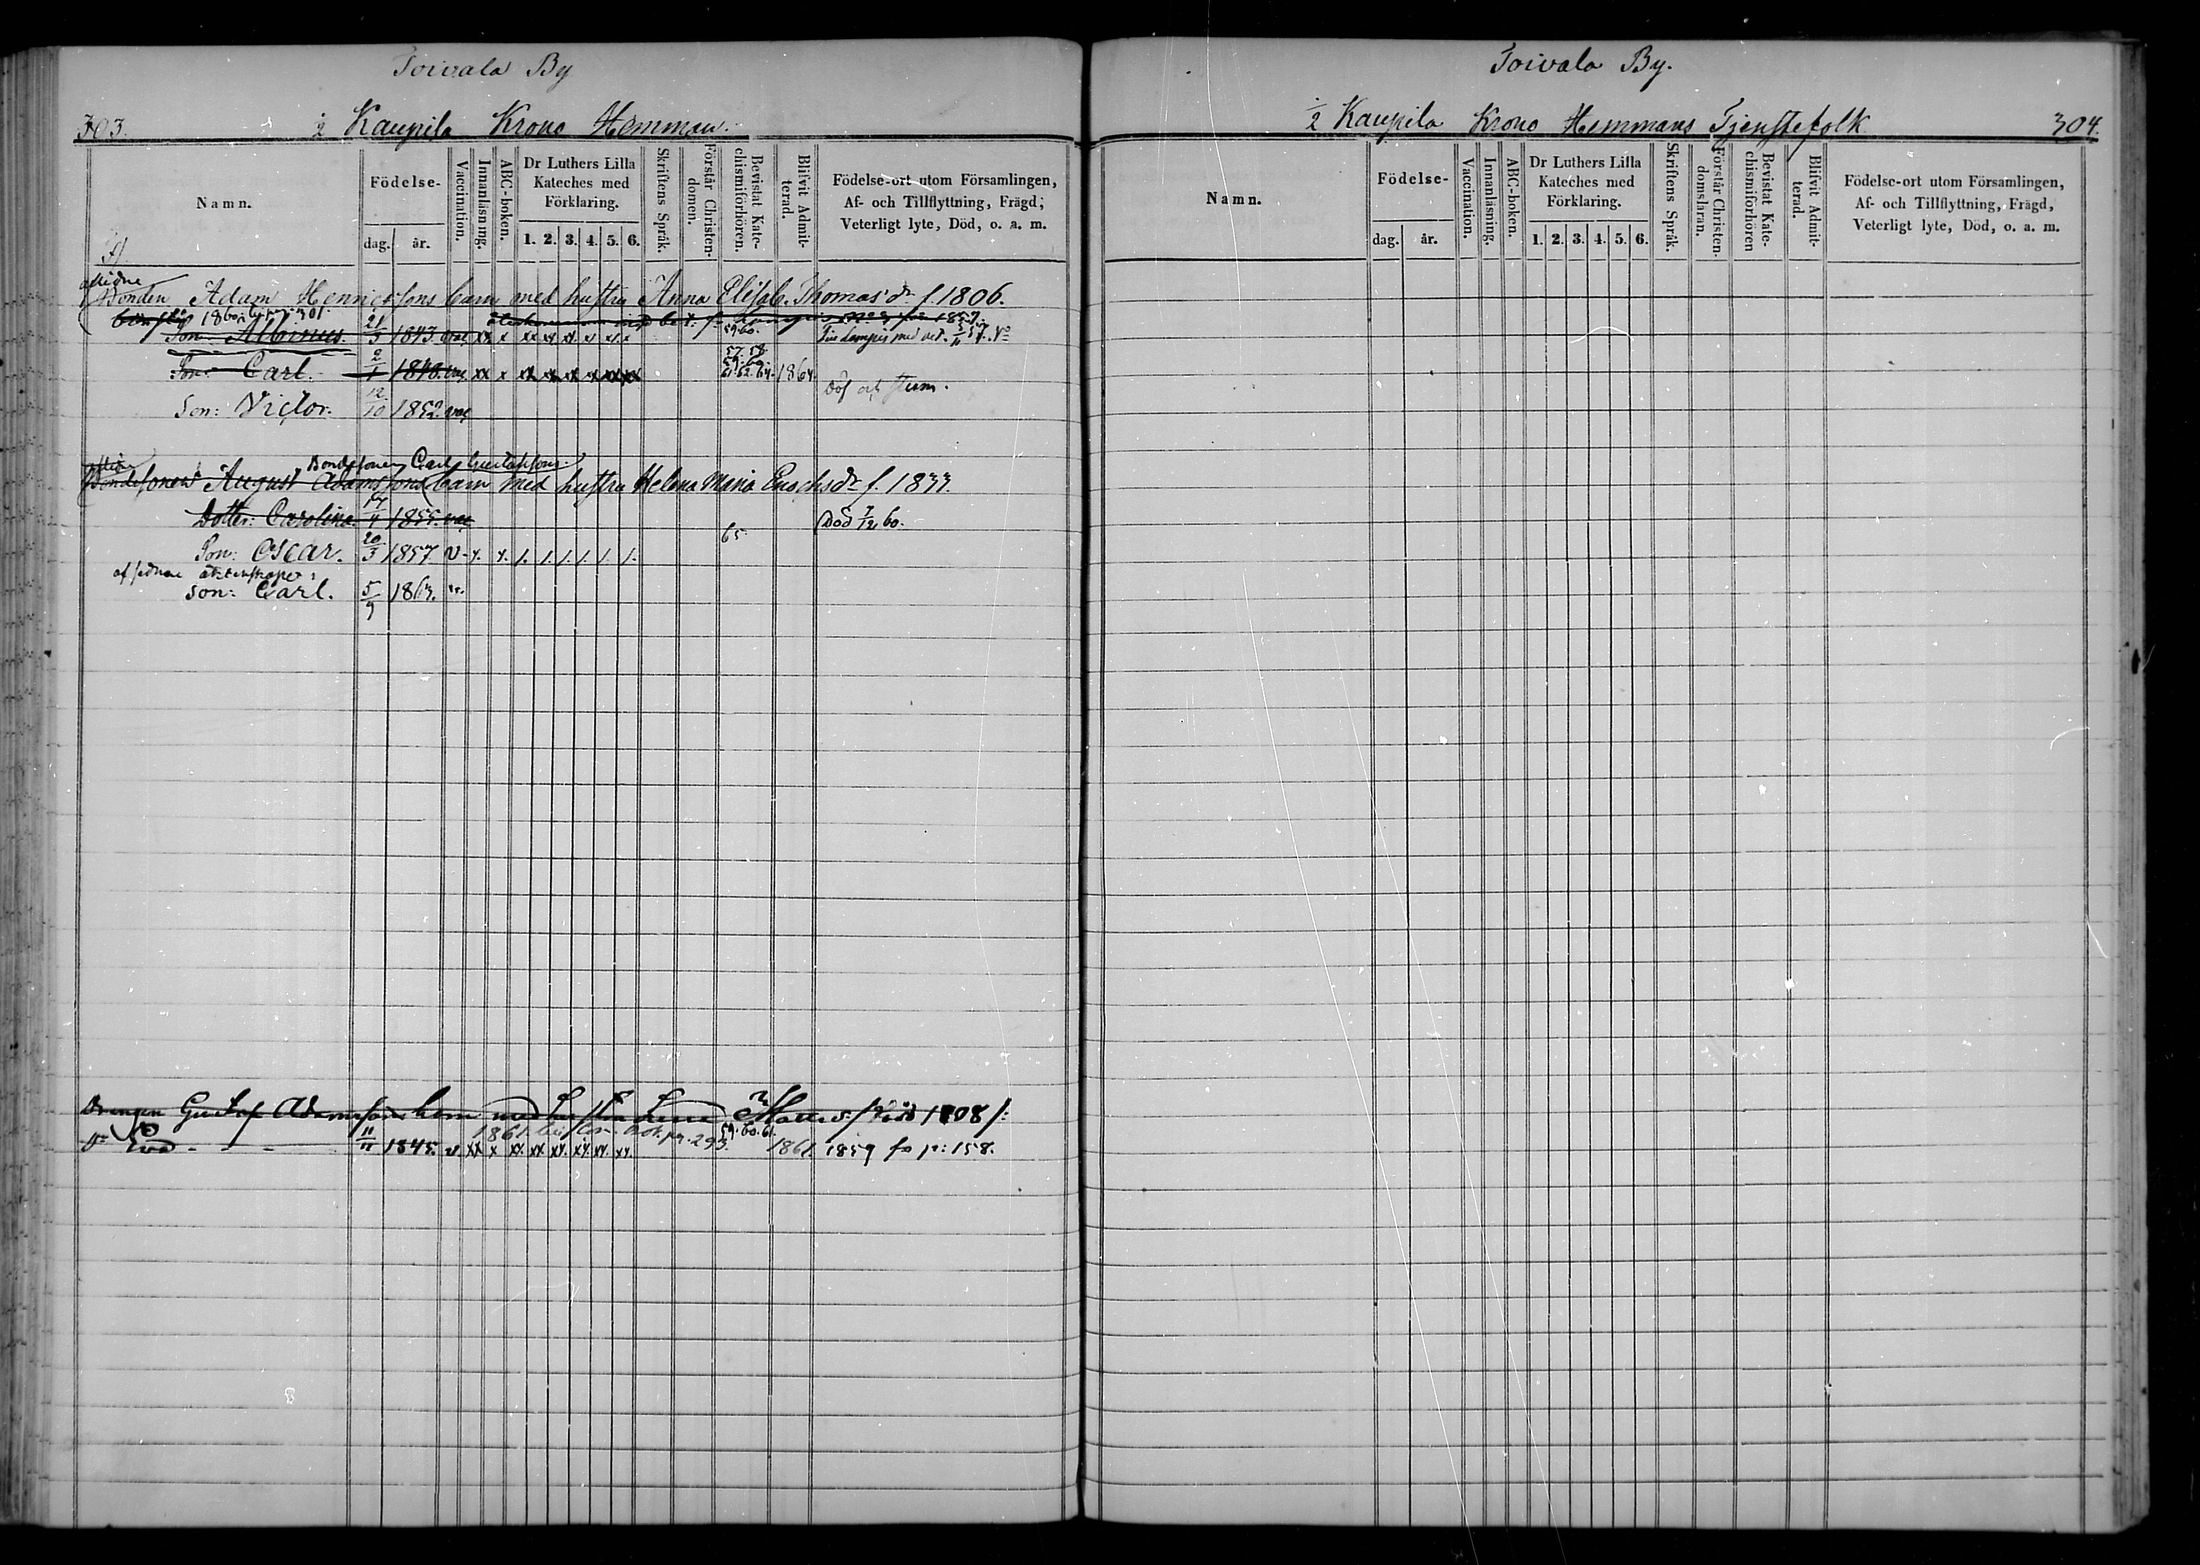 Toivala By
303. 1/2 Kaupila Krono Hemman.
Namn.
Födelse-
dag. år.
Vaccination.
Innanläsning.
ABC-boken.
Dr Luthers Lilla Kateches med Förklaring.
1. 2. 3. 4. 5. 6.
Skriftens Språk.
Förstår Christen-domen.
Bevistat Kate-chismiförhören.
Blifvit Admit-terad.
Födelse-ort utom Församlingen,
Af- och Tillflyttning, Frägd,
Veterligt lyte, Död, o. a. m.
aflidne
Bonden Adam Henricssons barn med hustru Anna Elisab. Thomasdr f. 1806.
Son: Albinus. 21/3 1843. vac xx x xx xx xx x x x 59. 60.
57. 58.
Son: Carl. 2/1 1848. vac xx x xx xx xx x xx xx 59. 60. 61. 62. 64. 1864. Döf och stum.
Son: Victor. 12/10 1852. vac
Bondesonen Carl Gustafssons
aflidne
Bondesonens August Adamssons barn med hustru Helena Maria Enochsdr f. 1833.
Dotter: Carolina. 14/4 1855. vac Död 7/12 60.
Son: Oscar. 20/3 1857. v. x. x. 1. 1. 1. 1. 1. 1. 65.
af sednare äktenskapet:
Son: Carl. 5/9 1863. v.
Drengen Gustaf Adamssons barn med hustru Lena Mattsdr född 1808/:
1861 pag. 293. 59. 60. 61.
Dr Eva - - 11/11 1845. v xx x xx xx xx xx xx xx 1861. 1859 fr p: 158.
Toivala By.
1/2 Kaupila Krono Hemmans Tjenstefolk 304.
Namn.
Födelse-
dag. år.
Vaccination.
Innanläsning.
ABC-boken.
Dr Luthers Lilla Kateches med Förklaring.
1. 2. 3. 4. 5. 6.
Skriftens Språk.
Förstår Christen-domsläran.
Bevistat Kate-chismiförhören
Blifvit Admit-terad.
Födelse-ort utom Församlingen,
Af- och Tillflyttning, Frägd,
Veterligt lyte, Död, o. a. m.